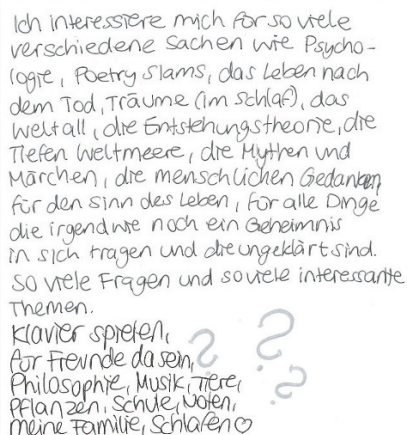 Ich interessiere mich für so viele
verschiedene Sachen wie Psycho-
logie, Poetry Slams, das Leben nach
dem Tod, Träume (im Schlaf), das
Weltall, die Entstehungstheorie, die
Tiefen Weltmeere, die Mythen und
Märchen, die menschlichen Gedanken
für den Sinn des Leben, für alle Dinge
die irgendwie noch ein Geheimnis
in sich tragen und die ungeklärt sind.
So viele Fragen und so viele interessante
Themen.
Klavier spielen,
für Freunde da sein, ?
Philosophie, Musik, Tiere, ?
Pflanzen, Schule, Noten, ?
meine Familie, Schlafen♡